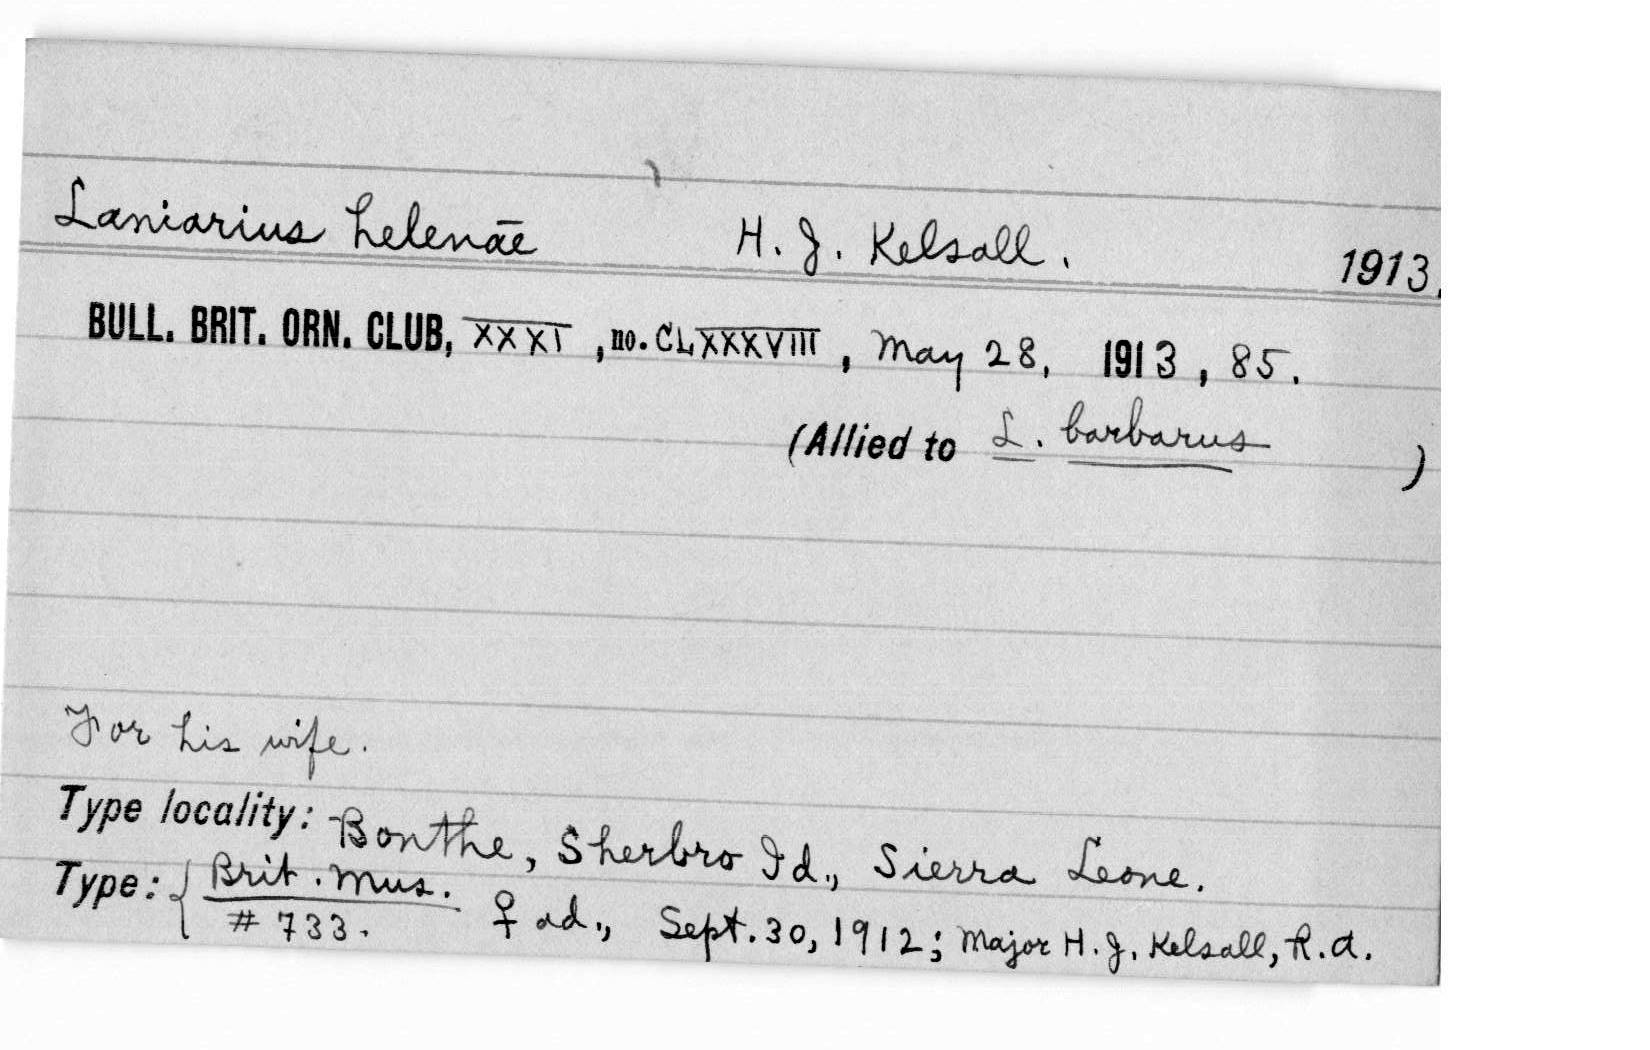 Laniarius helenae H. J. Kelsall. 1913.
BULL. BRIT. ORN. CLUB, XXXI, no. CLXXXVIII, May 28, 1913, 85.
(Allied to L. barbarus )
For his wife.
Type locality: Bonthe, Sherbro Id., Sierra Leone.
Type: { Brit. Mus.
# 733. ♀ ad., Sept. 30, 1912; Major H. J. Kelsall, R.A.